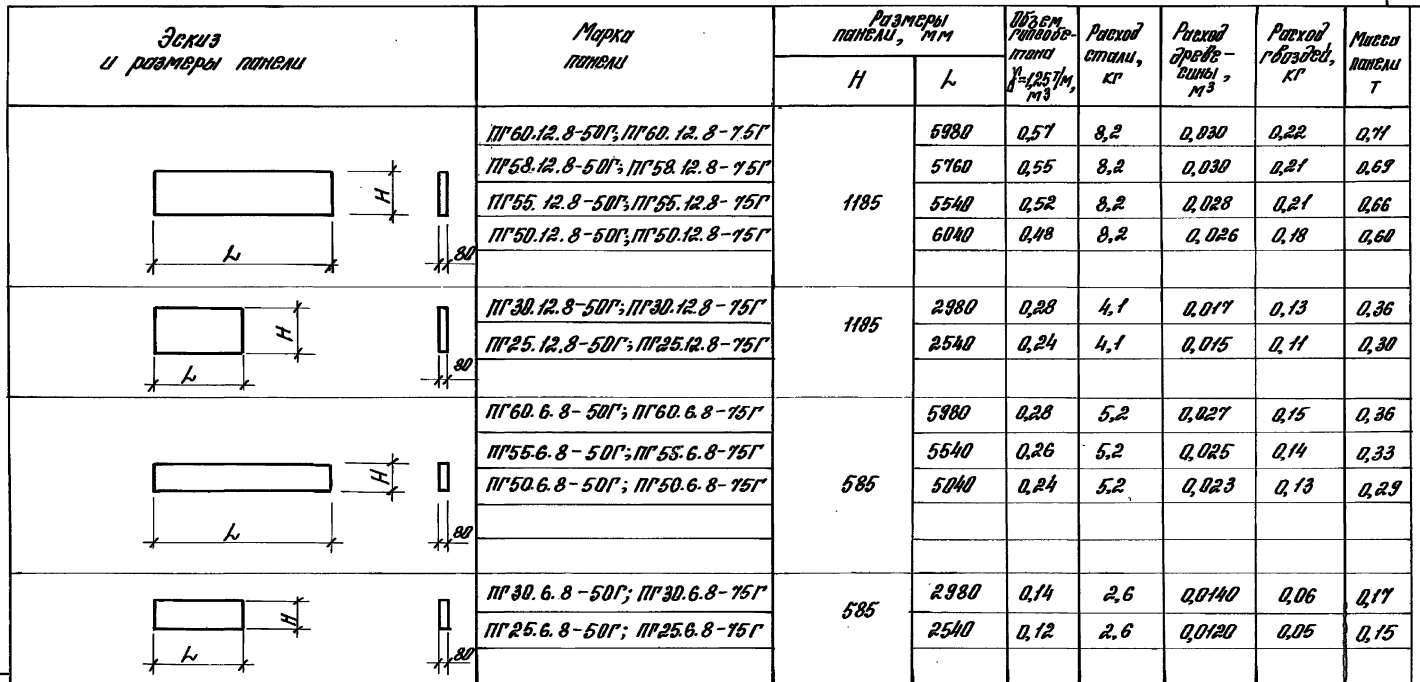 Эскиз и размеры панели | Марка панели | Размеры панели, мм | Объем гипсобетона γ=1,25 Т/м, м3 | Расход стали, кг | Расход древесины, м3 | Расход гвоздей, кг | Масса панели Т
H | L
ПГ60.12.8-50Г; ПГ60.12.8-75Г | 5980 | 0,57 | 8,2 | 0,030 | 0,22 | 0,71
ПГ58.12.8-50Г; ПГ58.12.8-75Г | 5760 | 0,55 | 8,2 | 0,030 | 0,21 | 0,69
H | 1185
ПГ55.12.8-50Г; ПГ55.12.8-75Г | 5540 | 0,52 | 8,2 | 0,028 | 0,21 | 0,66
ПГ50.12.8-50Г; ПГ50.12.8-75Г | 6040 | 0,48 | 8,2 | 0,026 | 0,18 | 0,60
L | 80
ПГ30.12.8-50Г; ПГ30.12.8-75Г | 2980 | 0,28 | 4,1 | 0,017 | 0,13 | 0,36
H | 1185
ПГ25.12.8-50Г; ПГ25.12.8-75Г | 2540 | 0,24 | 4,1 | 0,015 | 0,11 | 0,30
L | 80
ПГ60.6.8-50Г; ПГ60.6.8-75Г | 5980 | 0,28 | 5,2 | 0,027 | 0,15 | 0,36
ПГ55.6.8-50Г; ПГ55.6.8-75Г | 5540 | 0,26 | 5,2 | 0,025 | 0,14 | 0,33
H | 585
ПГ50.6.8-50Г; ПГ50.6.8-75Г | 5040 | 0,24 | 5,2 | 0,023 | 0,13 | 0,29
L | 80
ПГ30.6.8-50Г; ПГ30.6.8-75Г | 2980 | 0,14 | 2,6 | 0,0140 | 0,06 | 0,17
H | 585
ПГ25.6.8-50Г; ПГ25.6.8-75Г | 2540 | 0,12 | 2,6 | 0,0120 | 0,05 | 0,15
L | 80